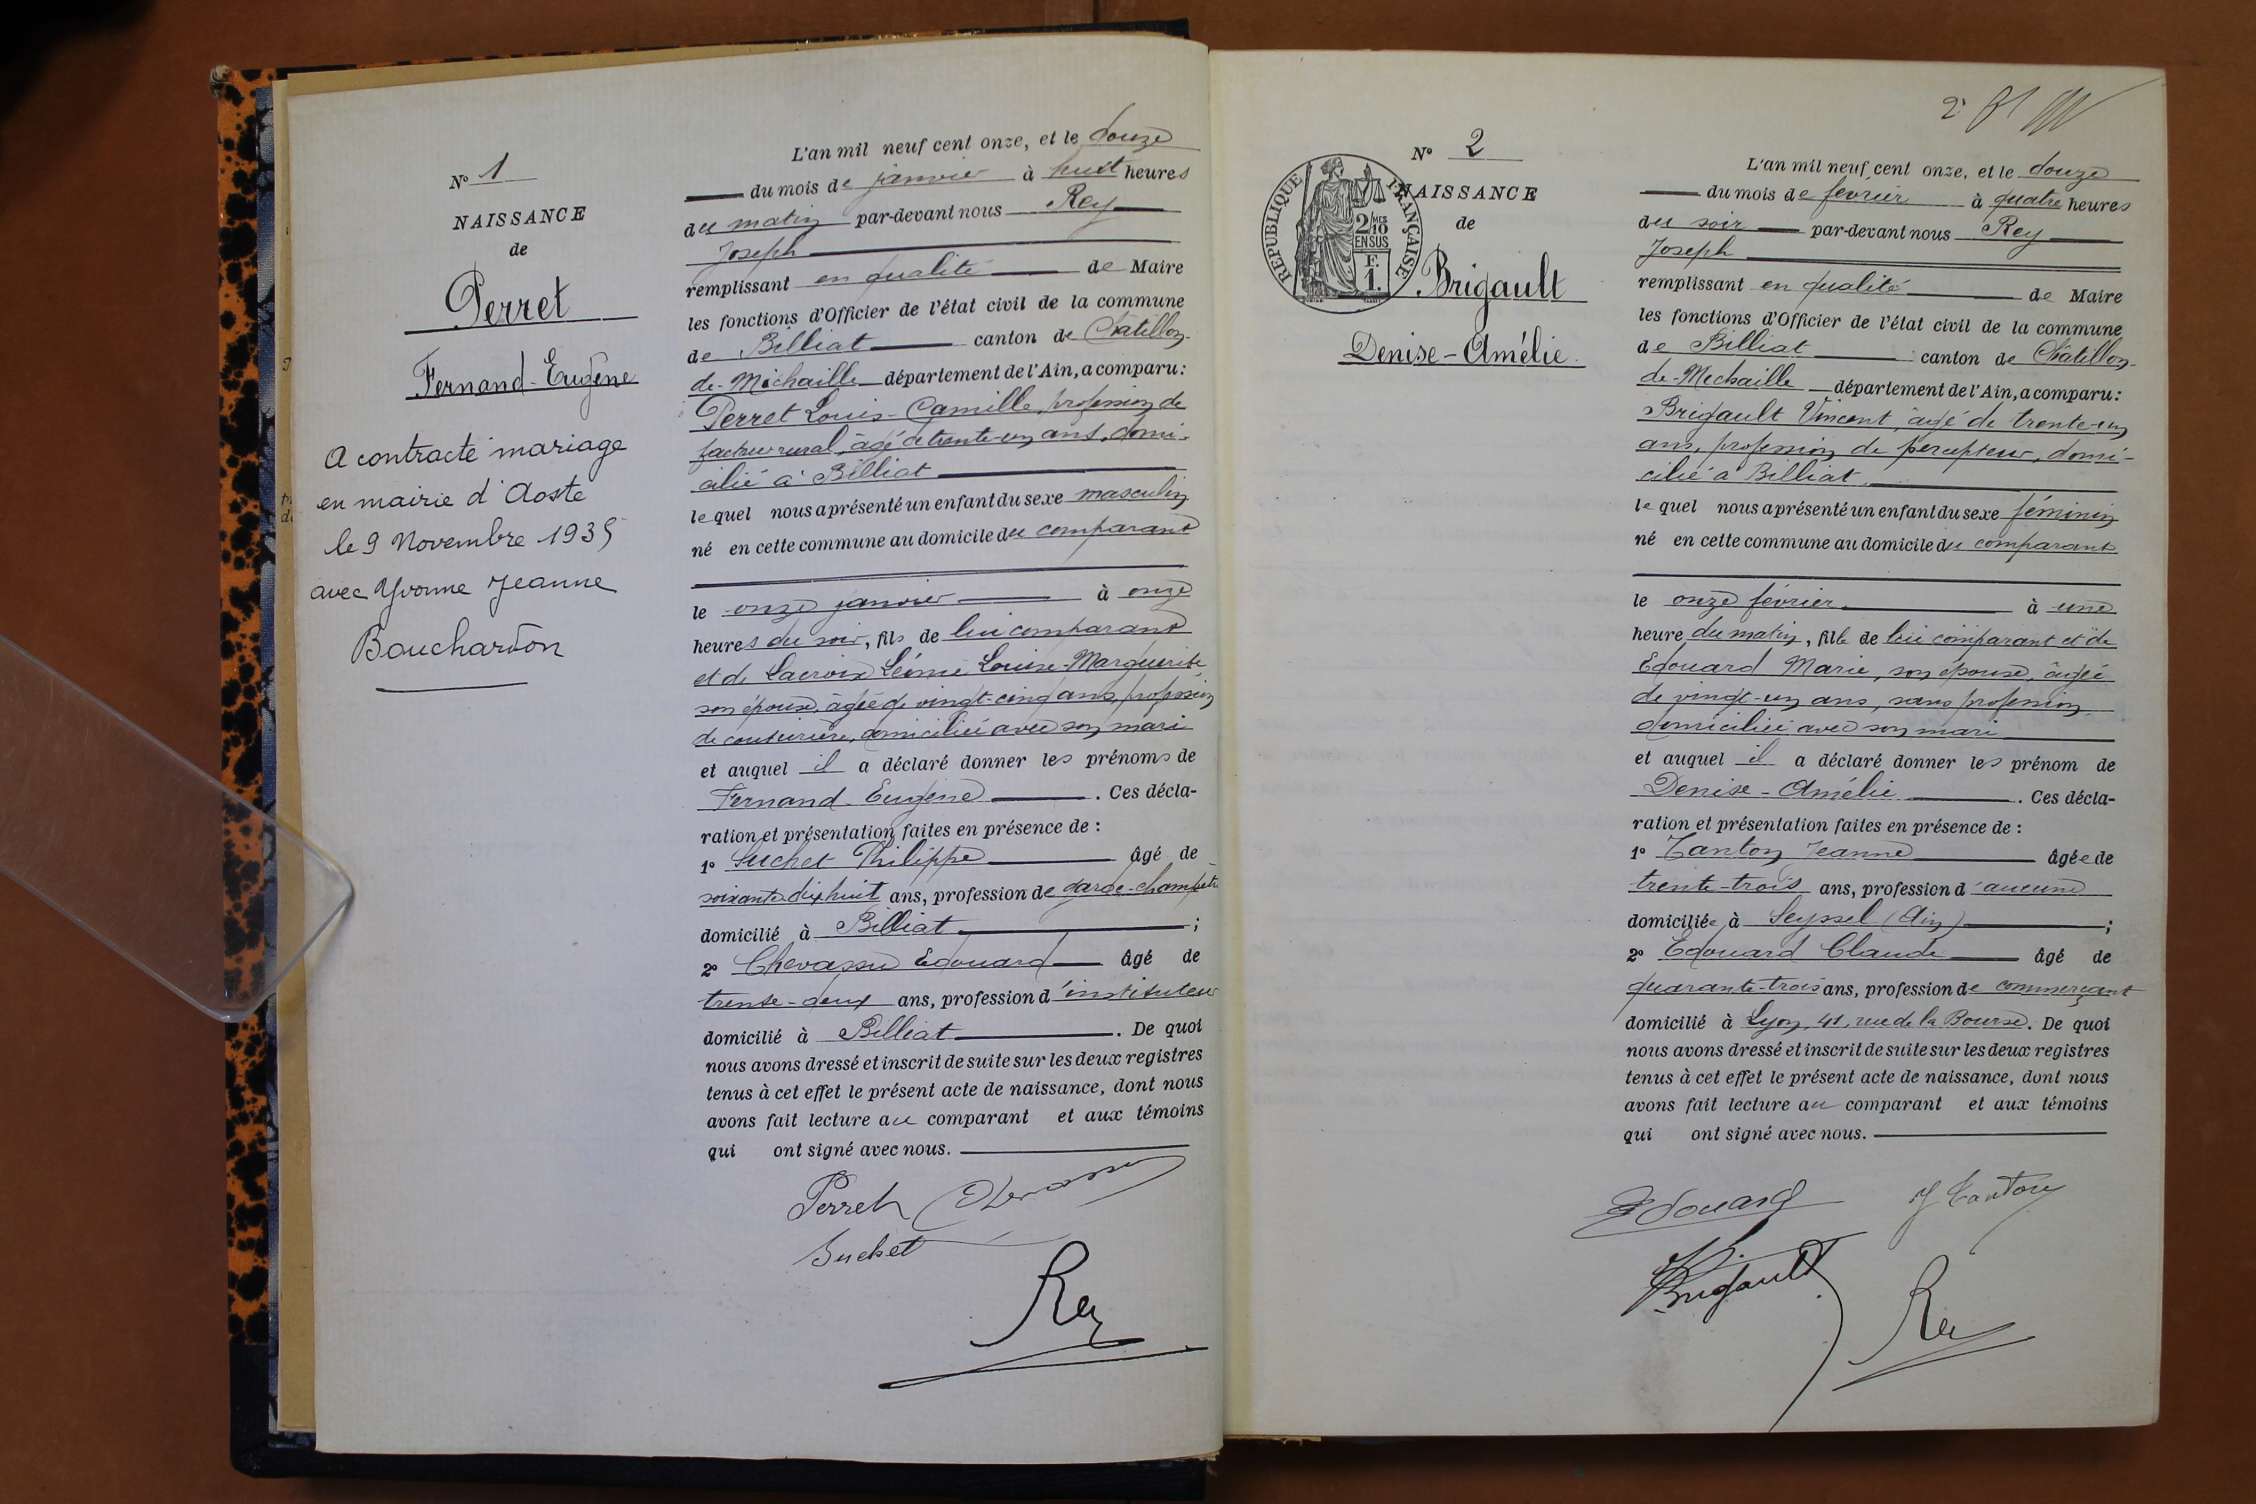 N° 1
NAISSANCE
de
Perret
Fernand-Eugène
A contracté mariage
en mairie d'Aoste
le 9 Novembre 1935
avec Yvonne Jeanne
Bouchardon
L'an mil neuf cent onze, et le douze
du mois de janvier à huit heures
du matin par-devant nous Rey
Joseph
remplissant en qualité de Maire
les fonctions d'Officier de l'état civil de la commune
de Billiat canton de Châtillon-
de-Michaille département de l'Ain, a comparu:
Perret Louis-Camille, profession de
facteur rural, âgé de trente-un ans, domi-
cilié à Billiat
lequel nous a présenté un enfant du sexe masculin
né en cette commune au domicile du comparant
le onze janvier à onze
heures du soir, fils de lui comparant
et de Lacroix Louise-Marguerite
son épouse, âgée de vingt-cinq ans, profession
de couturière, domiciliée avec son mari
et auquel il a déclaré donner les prénoms de
Fernand-Eugène. Ces décla-
ration et présentation faites en présence de :
1° Suchet Philippe âgé de
soixante dix huit ans, profession de garde-champêtre
domicilié à Billiat ;
2° Chevassu Edouard âgé de
trente-deux ans, profession d'instituteur
domicilié à Billiat. De quoi
nous avons dressé et inscrit de suite sur les deux registres
tenus à cet effet le présent acte de naissance, dont nous
avons fait lecture au comparant et aux témoins
qui ont signé avec nous.
Perret Chevassu
Suchet
Rey
2e
N° 2
RÉPUBLIQUE FRANÇAISE
2/10 MES
EN SUS
F.
1.
NAISSANCE
de
Brigault
Denise-Amélie
L'an mil neuf cent onze, et le douze
du mois de février à quatre heures
du soir par-devant nous Rey
Joseph
remplissant en qualité de Maire
les fonctions d'Officier de l'état civil de la commune
de Billiat canton de Châtillon-
de-Michaille département de l'Ain, a comparu:
Brigault Vincent, âgé de trente-un
ans, profession de percepteur, domi-
cilié à Billiat
lequel nous a présenté un enfant du sexe féminin
né en cette commune au domicile du comparant
le onze février à une
heure du matin, fille de lui comparant et de
Edouard Marie, son épouse, âgée
de vingt-un ans, sans profession
domiciliée avec son mari
et auquel il a déclaré donner les prénom de
Denise-Amélie. Ces décla-
ration et présentation faites en présence de :
1° Tanton Jeanne âgée de
trente-trois ans, profession d'aucune
domiciliée à Seyssel (Ain) ;
2° Edouard Claude âgé de
quarante-trois ans, profession de commerçant
domicilié à Lyon, 41, rue de la Bourse. De quoi
nous avons dressé et inscrit de suite sur les deux registres
tenus à cet effet le présent acte de naissance, dont nous
avons fait lecture au comparant et aux témoins
qui ont signé avec nous.
Edouard J Tanton
Brigault
Rey